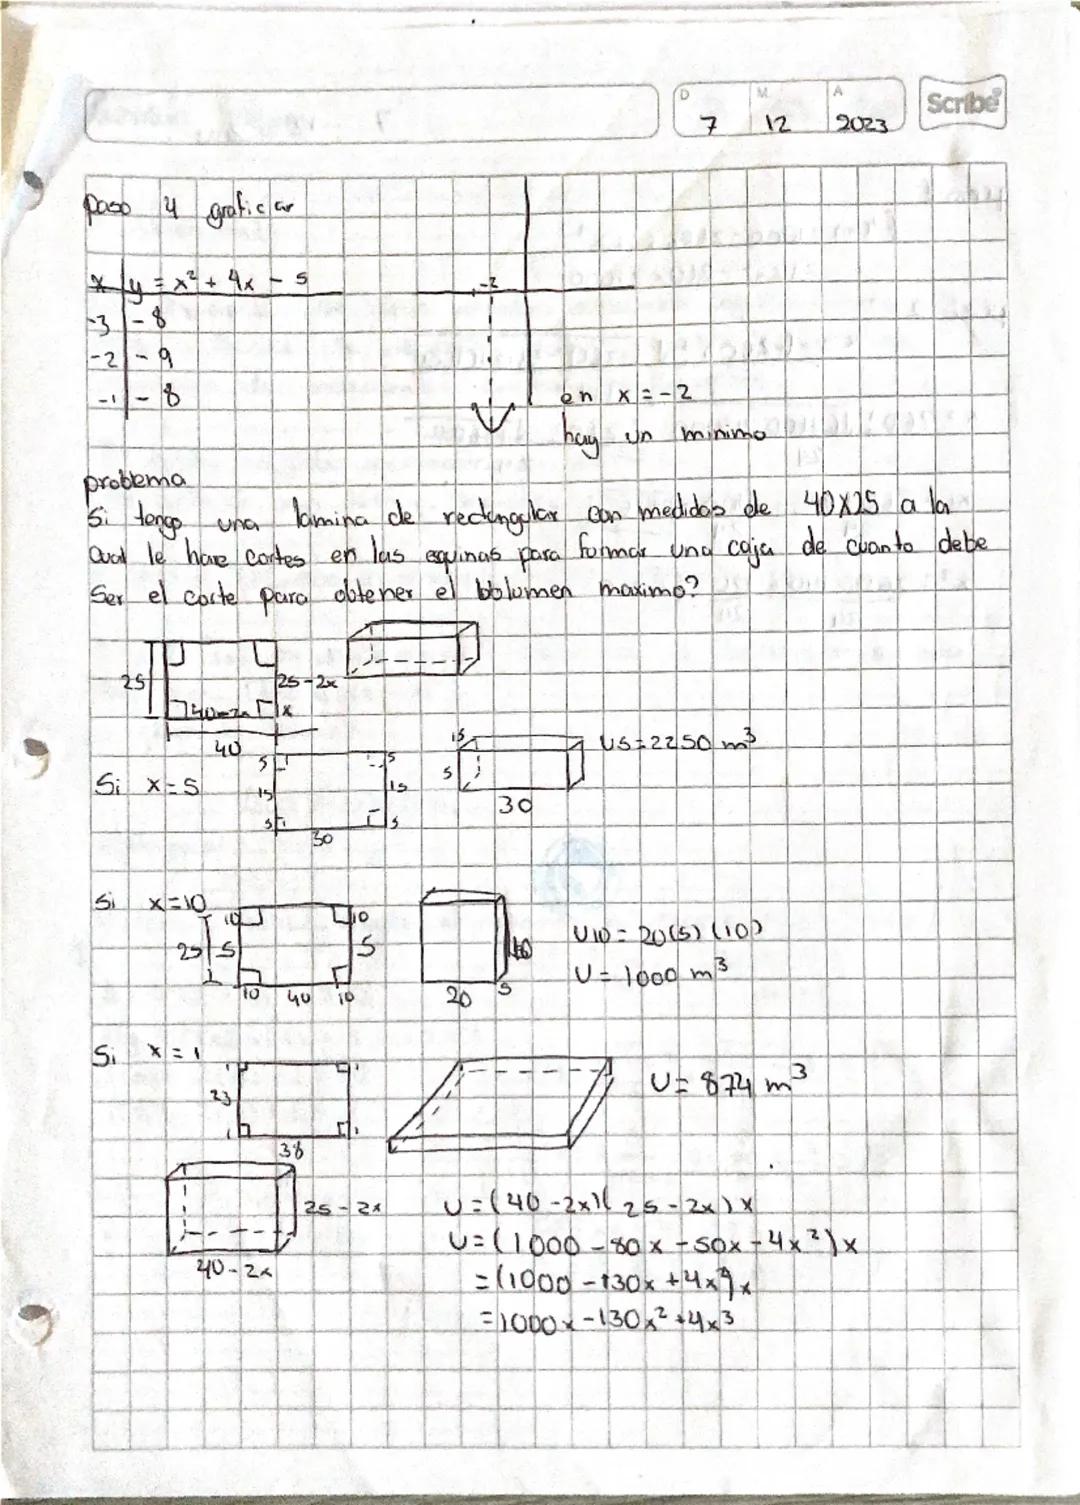 D M A
7 12 2023
Scribe
paso 4 graficar
x y = x² + 4x - 5
-3 -8
-2 -9
-1 -8
-2
en x = -2
hay un minimo
problema
Si tengo una lamina de rectangular con medidas de 40x25 a la
cual le hare cortes en las esquinas para formar una caja de cuanto debe
Ser el corte para obtener el bolumen maximo?
25
25-2x
40-2x x
40
Si x = 5
5 5
15 15
5 5
30
15
5
30
U5 = 2250 m³
Si x = 10
10 10
25 5 5
10 40 10
20 5
U10 = 20(5)(10)
U = 1000 m³
Si x = 1
1 1
23
1 1
38
U = 874 m³
25-2x
40-2x
U = (40-2x)(25-2x)x
U = (1000-80x-50x-4x²)x
= (1000-130x+4x²)x
= 1000x-130x²+4x³